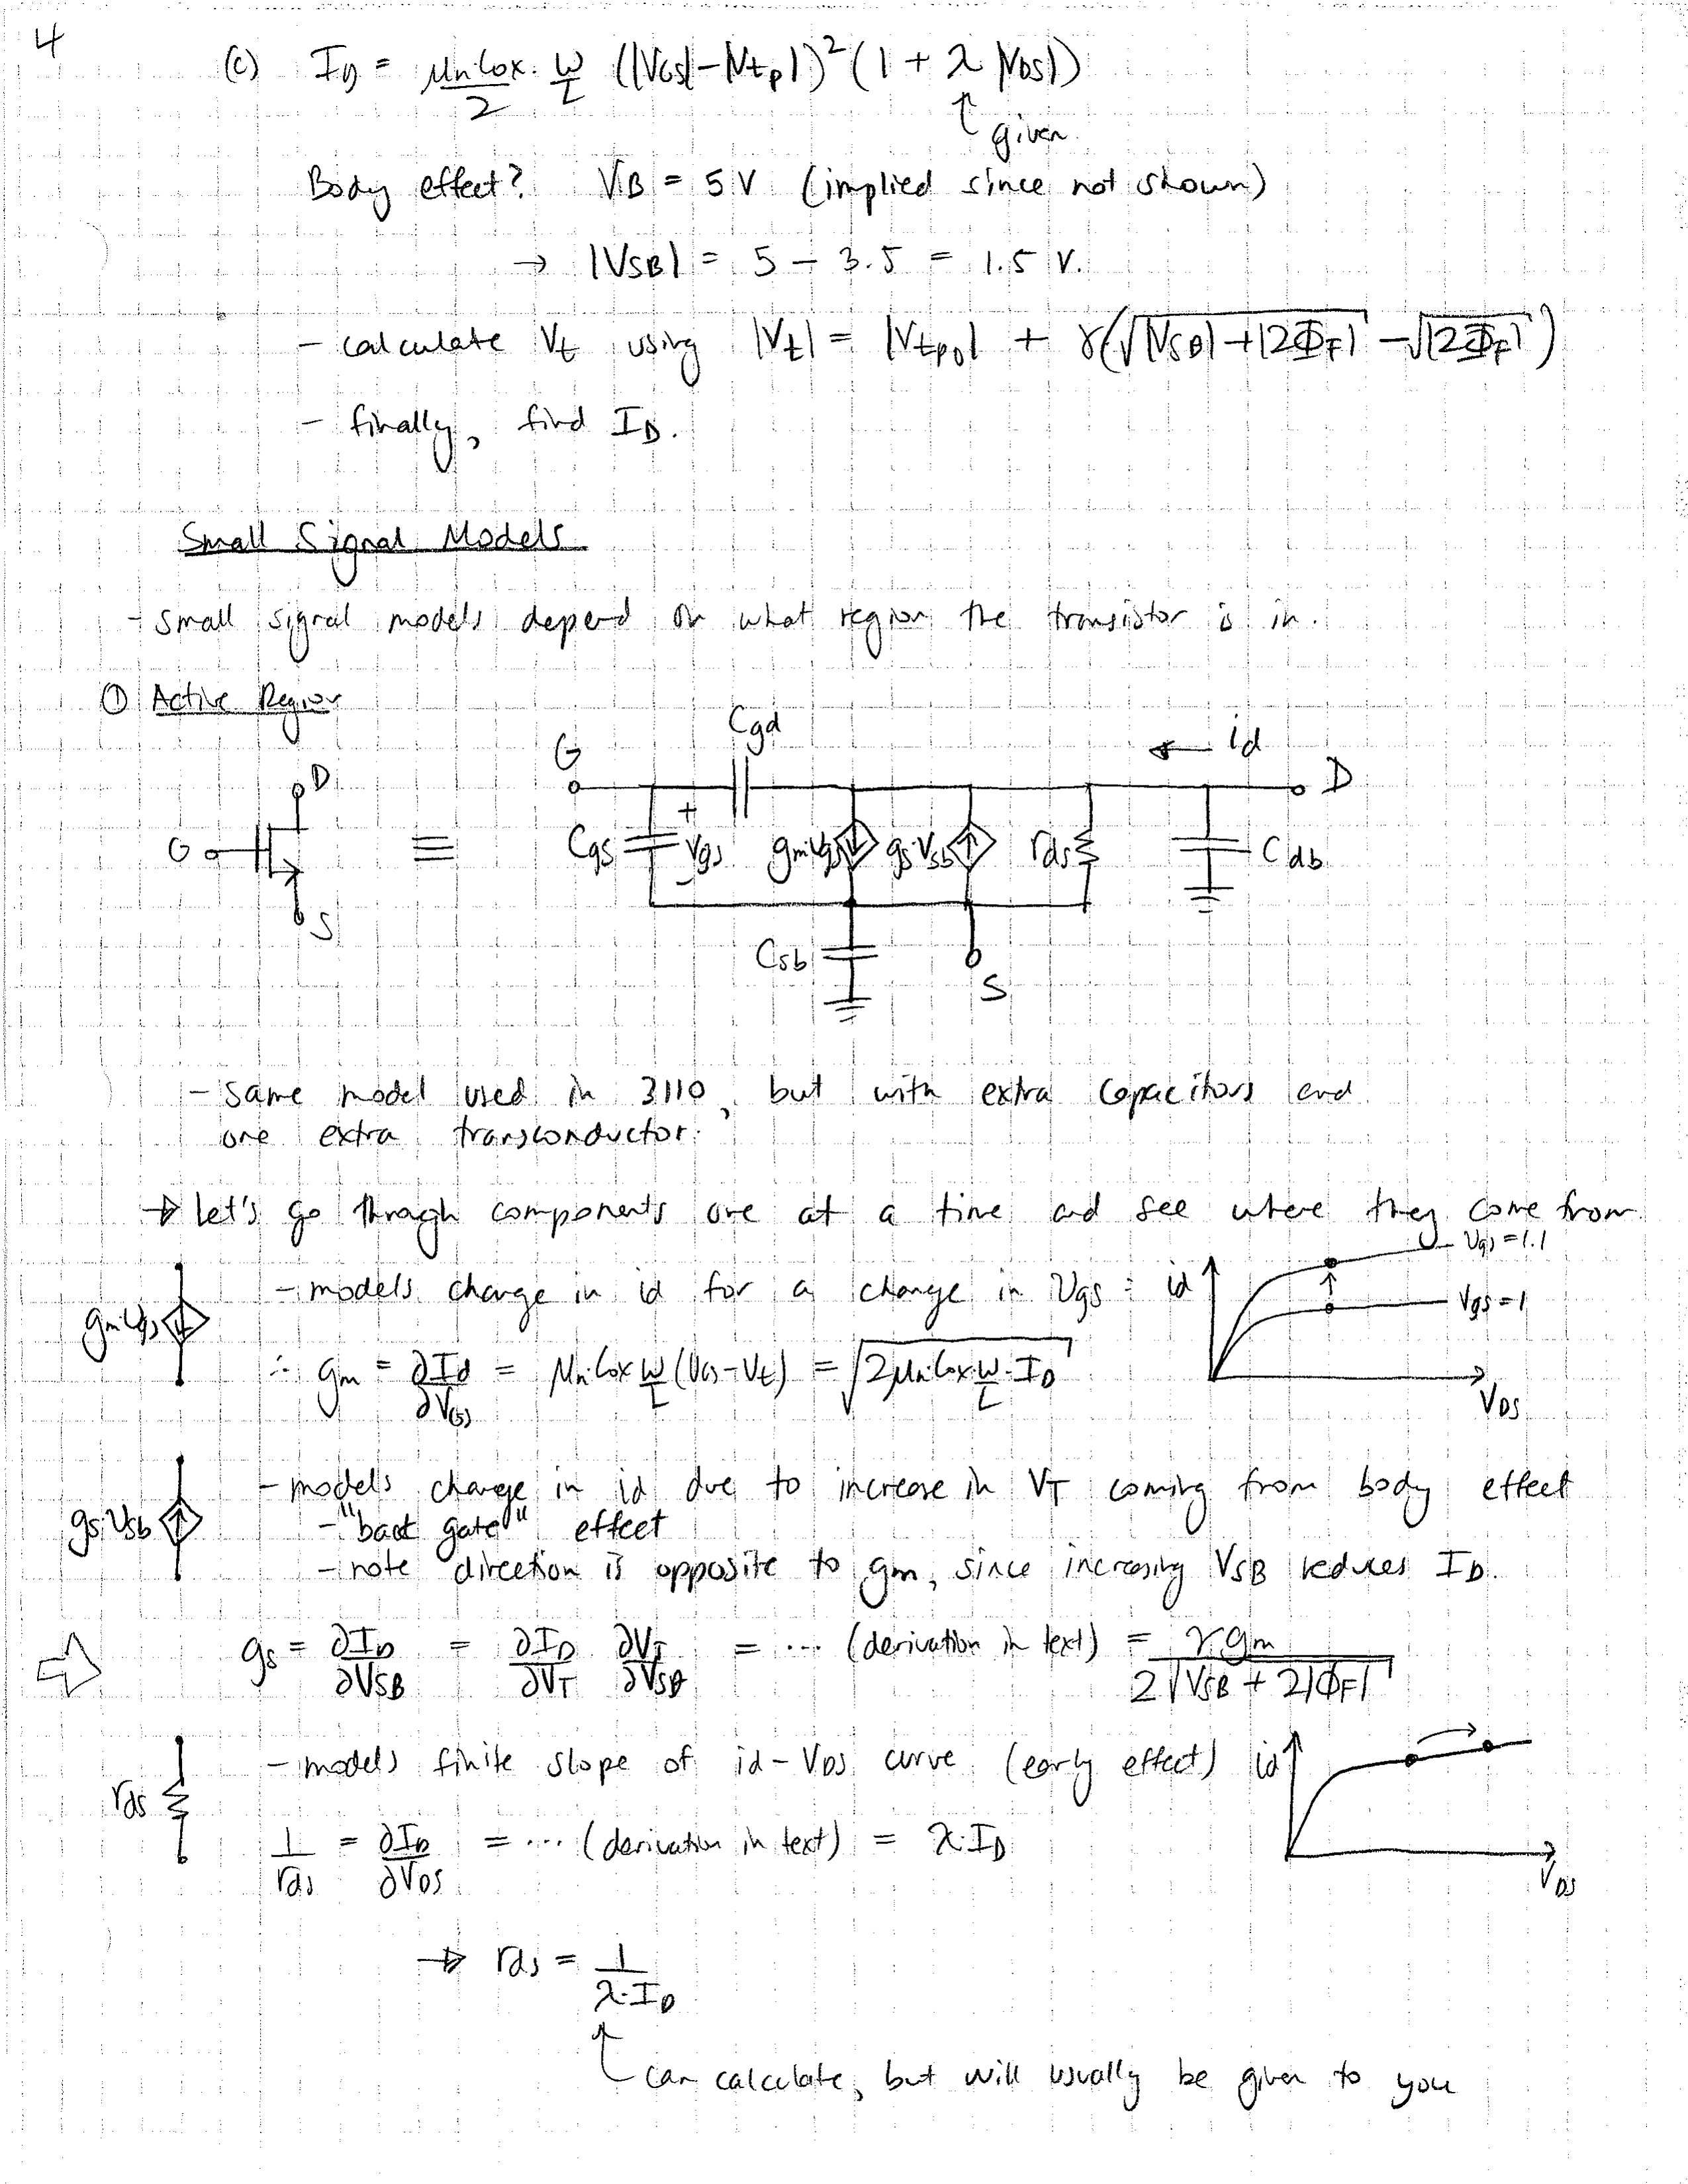 4
(c) I_D = μnCox/2 · W/L (|VGS|-|Vtp|)² (1 + λ |VDS|)
↑ given
Body effect? VB = 5V (implied since not shown)
→ |VSB| = 5 - 3.5 = 1.5 V.
- calculate Vt using |Vt| = |Vtpo| + γ(√(|VSB|+|2ΦF|) - √|2ΦF|)
- finally, find ID.
Small Signal Models
- small signal models depend on what region the transistor is in.
① Active Region
G D S ≡
G Cgd ← id D
Cgs + vgs - gmvgs gsvsb rds Cdb
Csb S
- same model used in 3110, but with extra capacitors and
one extra transconductor.
→ let's go through components one at a time and see where they come from
gmvgs - models change in id for a change in Vgs : id Vgs=1.1 Vgs=1 VDS
∴ gm = ∂Id/∂VGS = μnCox W/L (VGS-Vt) = √(2μnCox W/L · ID)
gsvsb - models change in id due to increase in VT coming from body effect
- "back gate" effect
- note direction is opposite to gm, since increasing VSB reduces ID.
⇒ gs = ∂ID/∂VSB = ∂ID/∂VT ∂VT/∂VSB = ... (derivation in text) = γgm / 2√(VSB + 2|ΦF|)
rds - models finite slope of id-VDS curve (early effect) id VDS
1/rds = ∂ID/∂VDS = ... (derivation in text) = λ·ID
→ rds = 1/λ·ID
↑ can calculate, but will usually be given to you